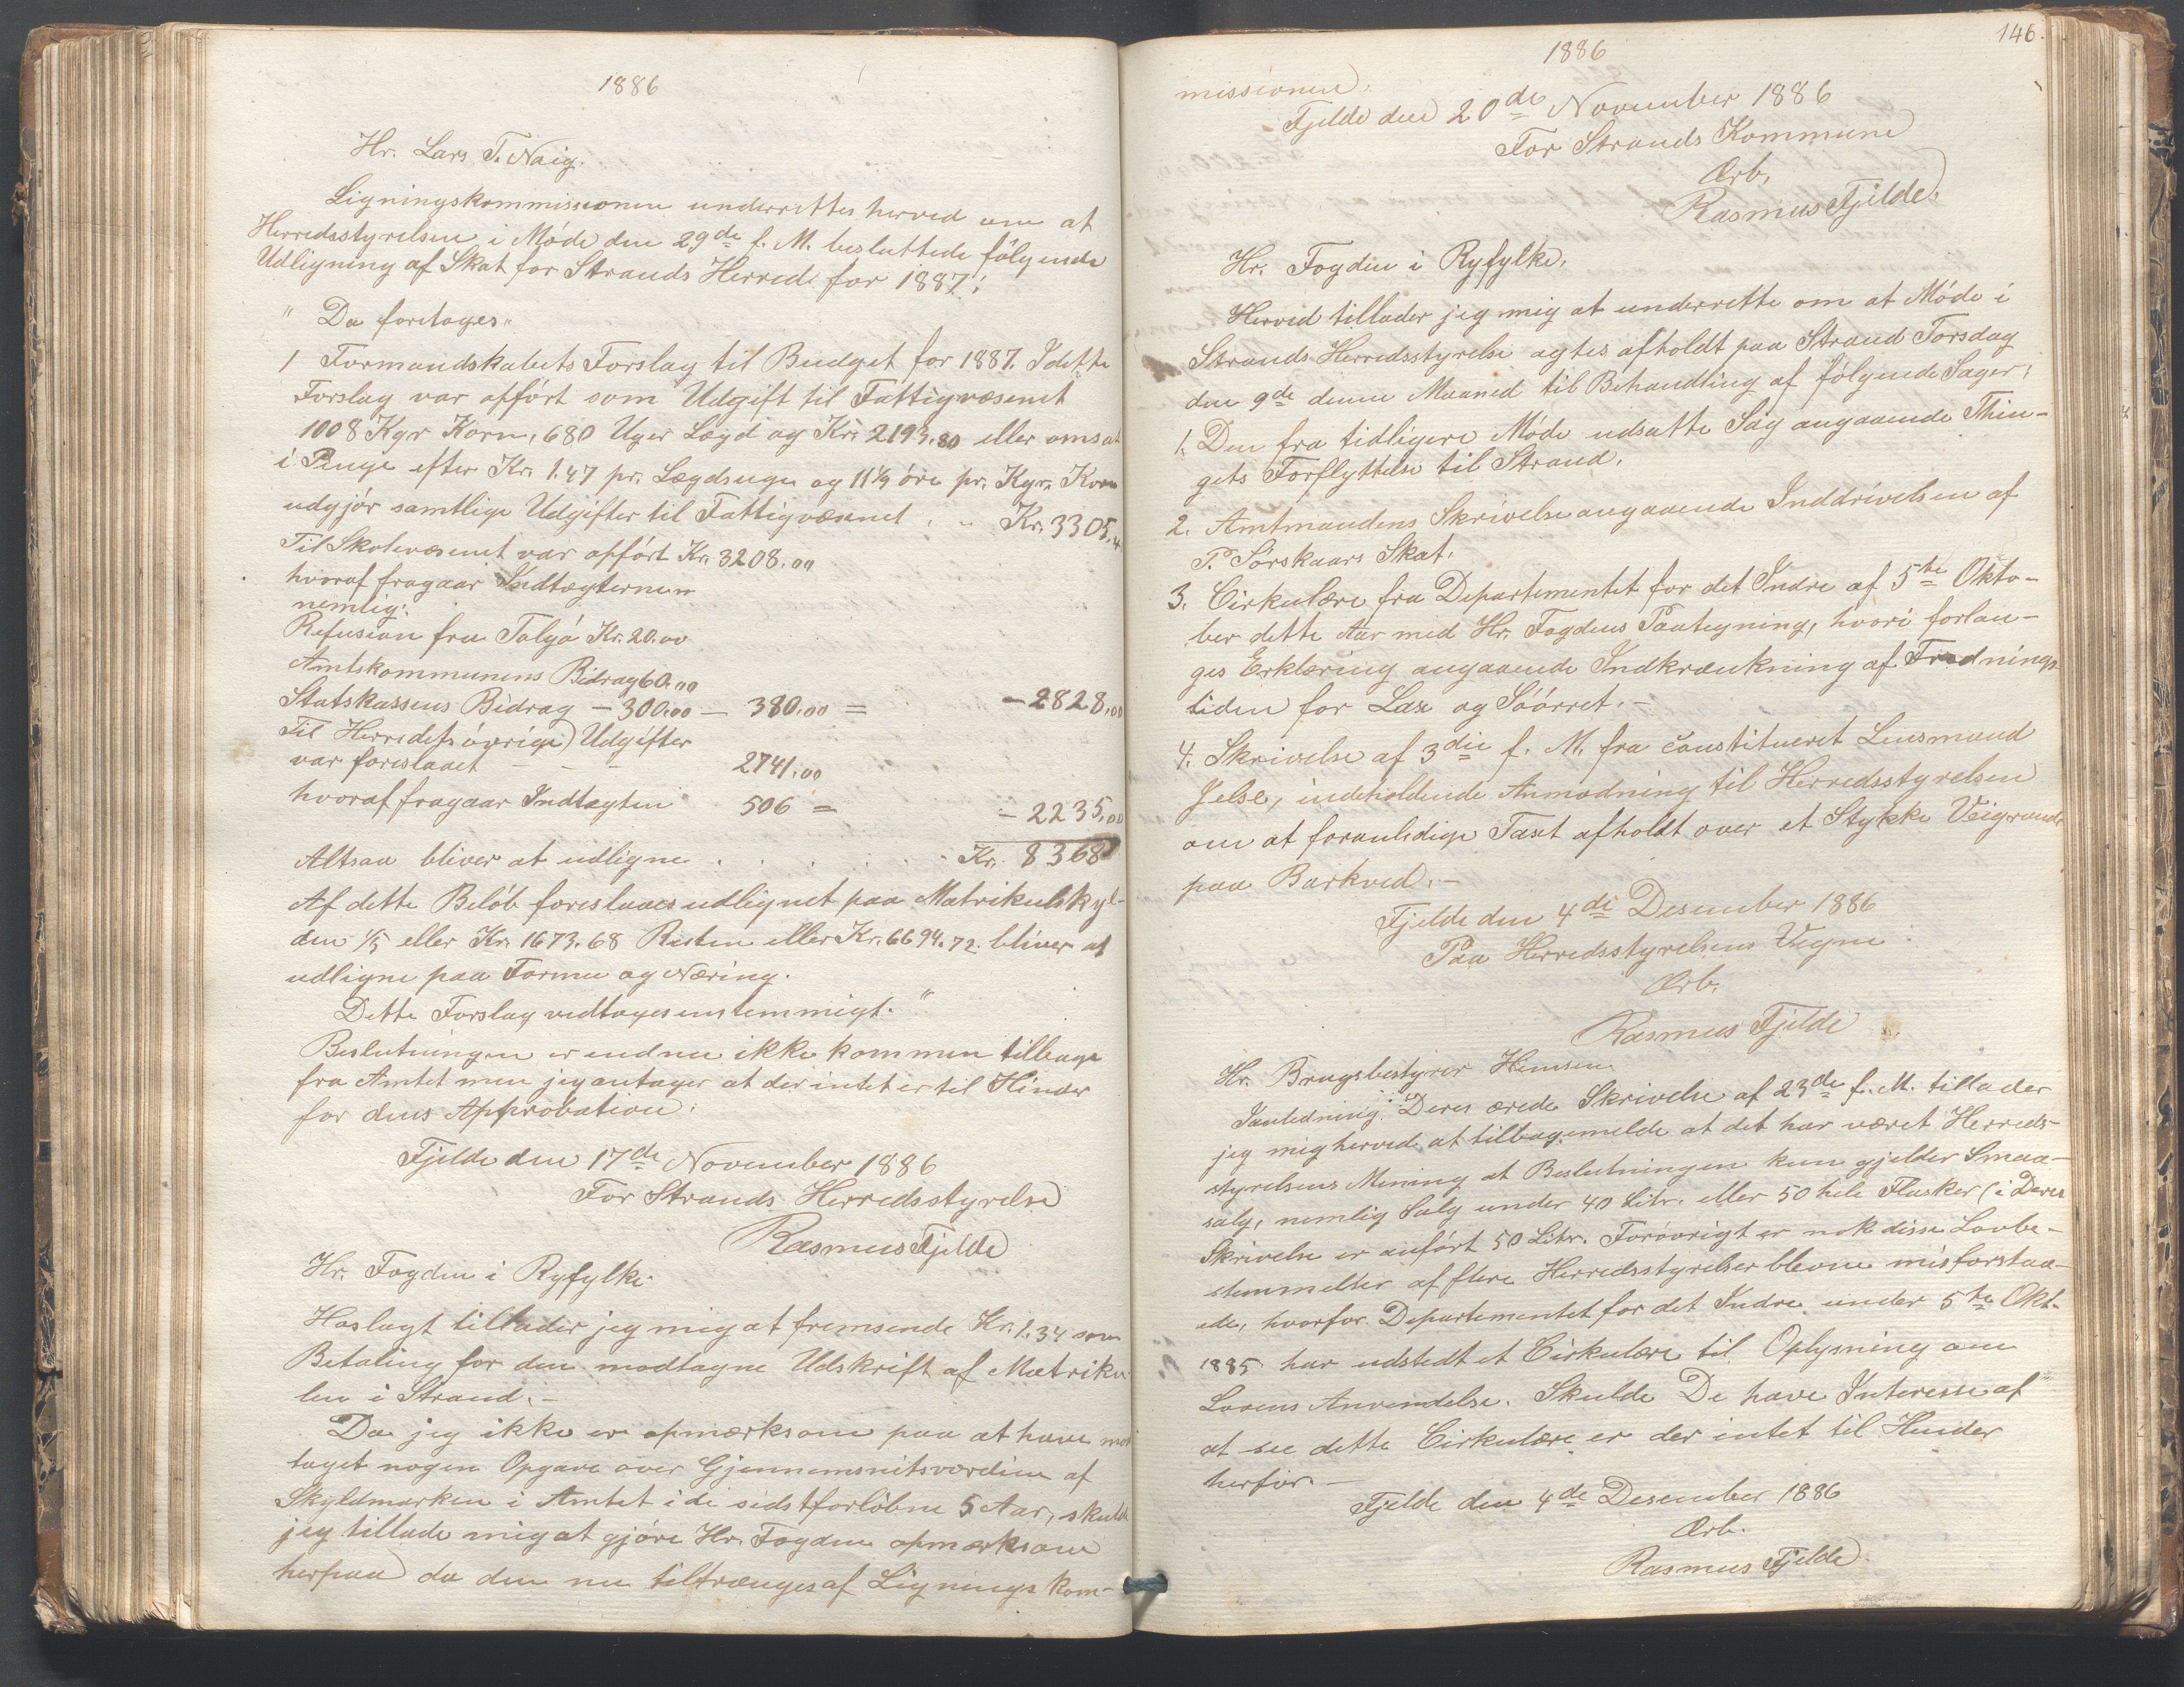 1886
Hr. Lars T. Naig.
Ligningskommissionen underrettes herved om at
Herredsstyrelsen i Møde den 29de f. M. besluttede følgende
Udligning af Skat for Strands Herred for 1887:
" Da foretoges"
1 Formandskabets Forslag til Budget for 1887. I dette
Forslag var opført som Udgift til Fattigvæsenet
1008 Kgr Korn, 680 Uger Lægd og Kr. 2193.80 eller omsat
i Penge efter Kr. 1.47 pr. Lægdsuge og 11 1/9 øre pr. Kgr. Korn
udgjør samtlige Udgifter til Fattigvæsenet . .. Kr. 3305.
Til Skolevæsenet var opført Kr. 3208.00
hvoraf fragaar Indtægterne
nemlig:
Refusion fra Talgø Kr. 20.00
Amtskommunens Bidrag 60.00
Statskassens Bidrag – 300.00 – 380.00 = – 2828.00
Til Herredets øvrige Udgifter
var foreslaaet – – – 2741.00
hvoraf fragaar Indtægten 506 = – 2235.00
Altsaa bliver at udligne . . . . . . Kr. 8368
Af dette Beløb foreslaaes udlignet paa Matrikulskyl-
den 1/5 eller Kr. 1673.68 Resten eller Kr. 6694.72 bliver at
udligne paa Formue og Næring.
Dette Forslag vedtoges enstemmigt."
Beslutningen er endnu ikke kommen tilbage
fra Amtet men jeg antager at der intet er til Hinder
for dens Approbation.
Fjelde den 17de November 1886
For Strands Herredsstyrelse
Rasmus Fjelde
Hr. Fogden i Ryfylke
Hoslagt tillader jeg mig at fremsende Kr. 1.34 som
Betaling for den modtagne Udskrift af Matriku-
len i Strand. –
Da jeg ikke er opmærksom paa at have mod
taget nogen Opgave over Gjennemsnitsværdien af
Skyldmarken i Amtet i de sidstforløbne 5 Aar, skulde
jeg tillade mig at gjøre Hr. Fogden opmærksom
herpaa da den nu tiltrænges af Ligningskom-
146.
1886
missionen.
Fjelde den 20de November 1886
For Strands Kommune
Ærb.
Rasmus Fjelde.
Hr. Fogden i Ryfylke.
Herved tillader jeg mig at underrette om at Møde i
Strands Herredsstyrelse agtes afholdt paa Strand Torsdag
den 9de denne Maaned til Behandling af følgende Sager:
1. Den fra tidligere Møde udsatte Sag angaaende Thin-
gets Forflyttelse til Strand.
2. Amtmandens Skrivelse angaaende Inddrivelsen af
P. Sørskaars Skat.
3. Cirkulære fra Departementet for det Indre af 5te Okto-
ber dette Aar med Hr. Fogdens Paategning, hvori forlan-
ges Erklæring angaaende Indkrænkning af Frednings-
tiden for Lax og Søørret. –
4. Skrivelse af 3die f. M. fra constitueret Lensmand
Jelse, indeholdende Anmodning til Herredsstyrelsen
om at foranledige Taxt afholdt over et Stykke Veigrund
paa Barkved. –
Fjelde den 4de Desember 1886
Paa Herredsstyrelsens Vegne
Ærb.
Rasmus Fjelde
Hr. Brugsbestyrer Hemsen.
I anledning Deres ærede Skrivelse af 23de f. M. tillader
jeg mig herved at tilbagemelde at det har været Herreds-
styrelsens Mening at Beslutningen kun gjelder Smaa-
salg, nemlig Salg under 40 Litr. eller 50 hele Flasker (i Deres
Skrivelse er anført 50 Liter. Forøvrigt er nok disse Lovbe-
stemmelser af flere Herredsstyrelser blevne misforstaa-
ede, hvorfor Departementet for det Indre under 5te Okt.
1885 har udstedt et Cirkulære til Oplysning om
Lovens Anvendelse. Skulde De have Interesse af
at see dette Cirkulære er der intet til Hinder
herfor. –
Fjelde den 4de Desember 1886
Ærb.
Rasmus Fjelde.